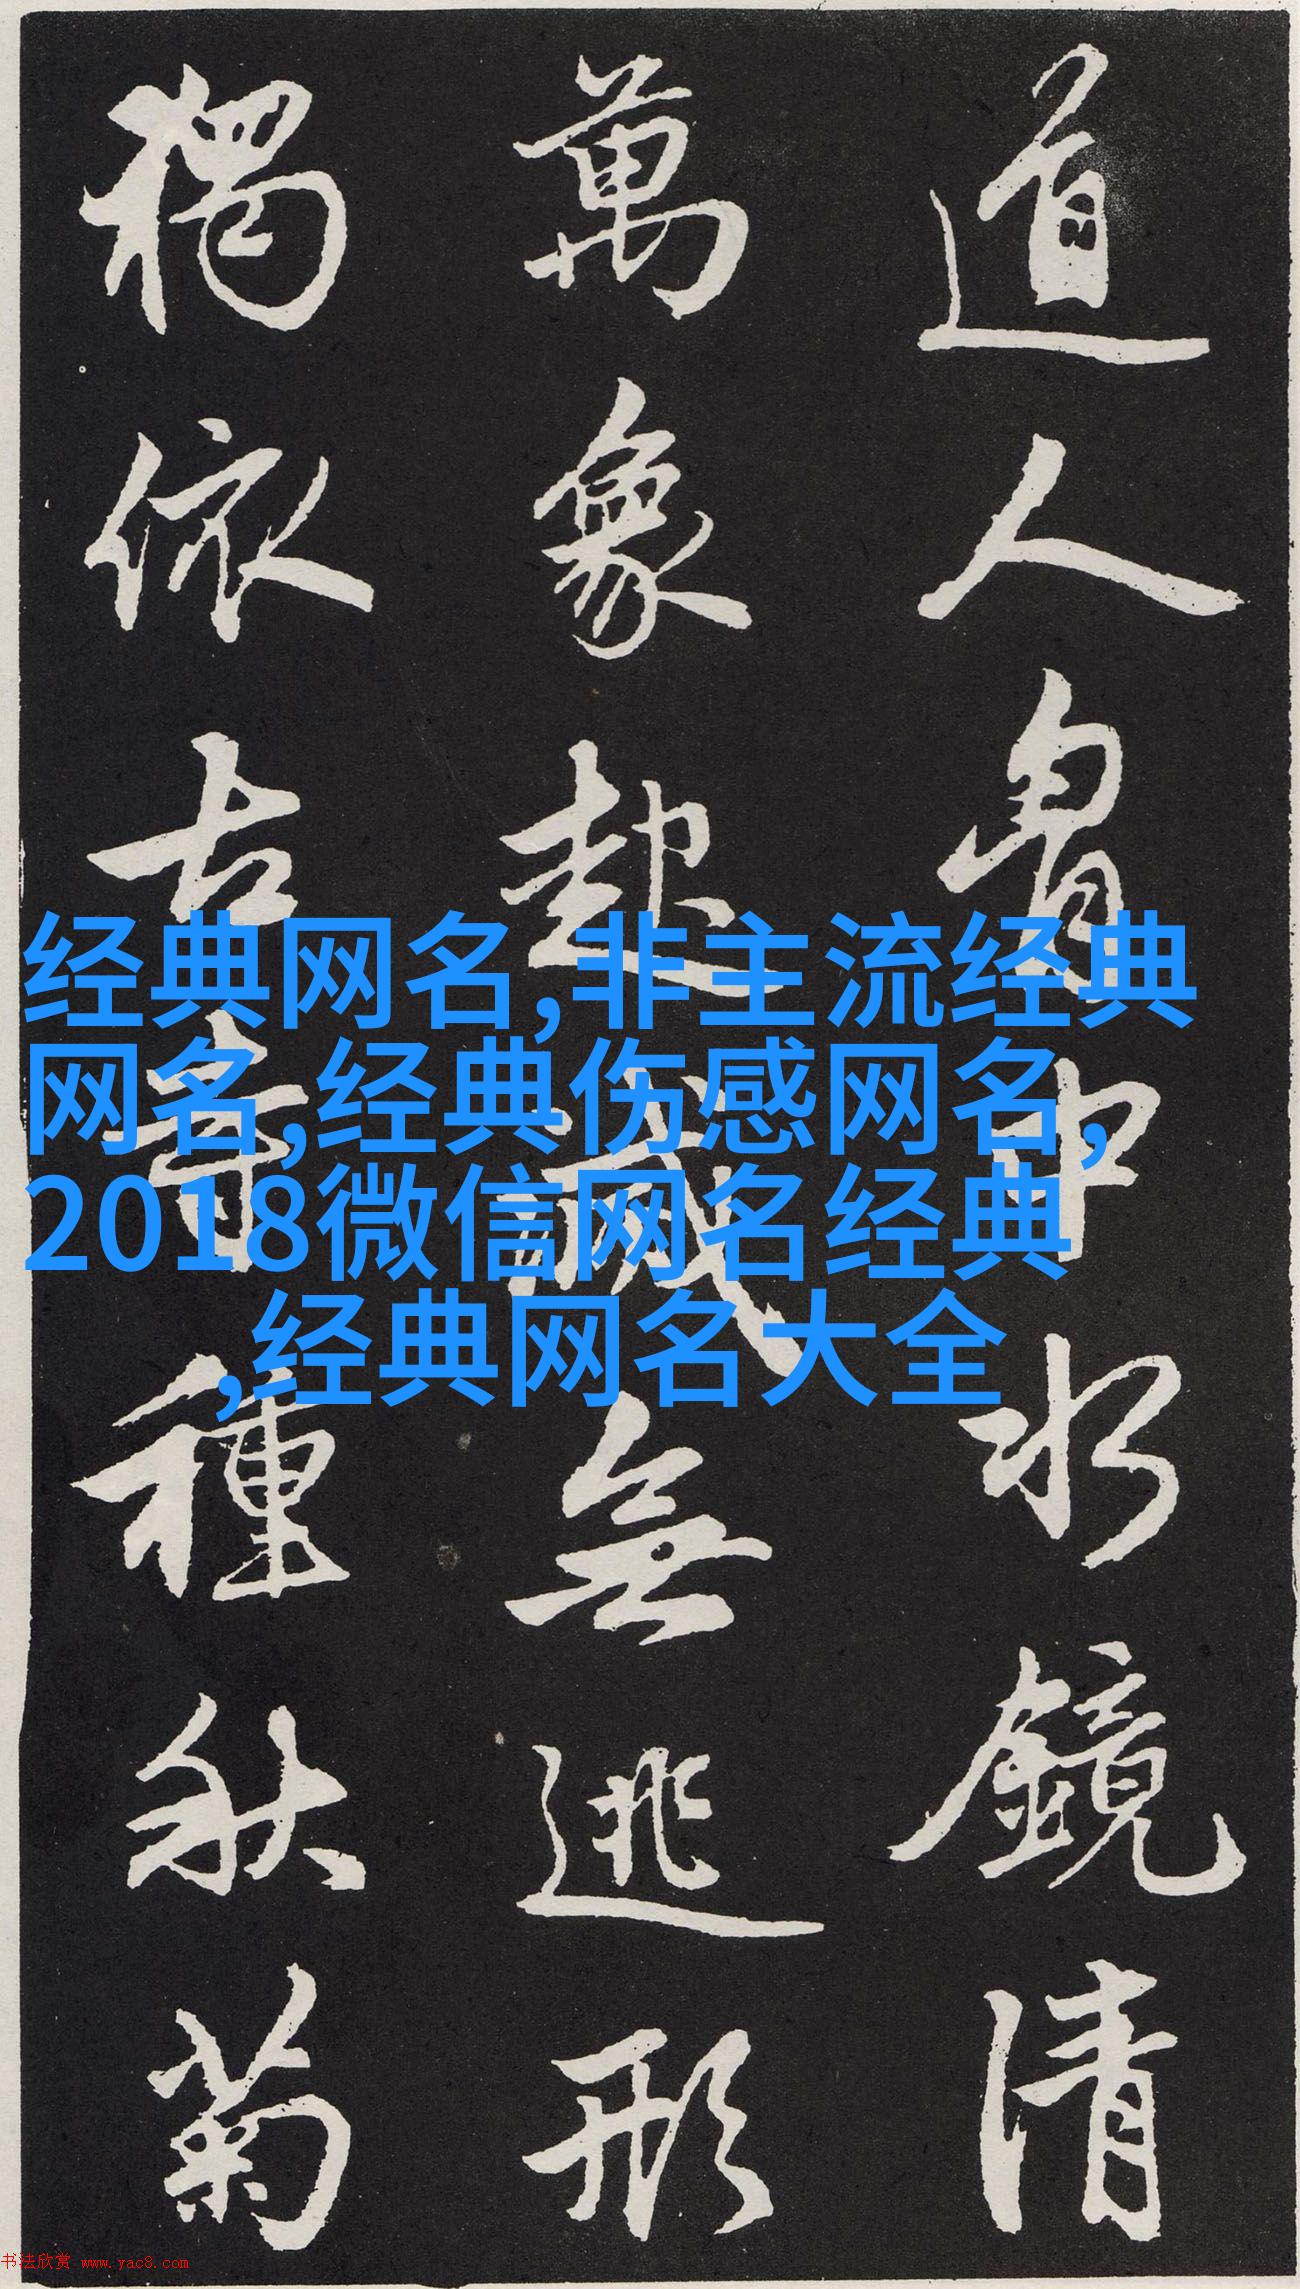 道人胷中水鏡清
萬象起滅無逃形
獨依古寺種秋菊
经典网名,非主流经典
网名,经典伤感网名,
2018微信网名经典
,经典网名大全
书法欣赏 www.yac8.com